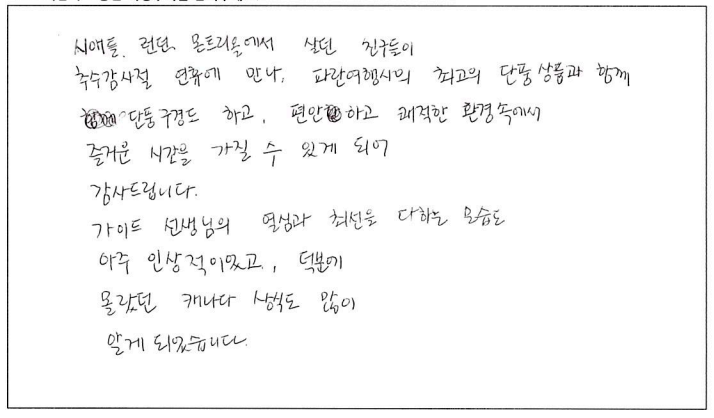 시애틀, 런던, 몬트리올에서 살던 친구들이
추수감사절 연휴에 만나, 파란여행사의 최고의 단풍상품과 함께
단풍구경도 하고, 편안하고 쾌적한 환경속에서
즐거운 시간을 가질 수 있게 되어
감사드립니다.
가이드 선생님의 열심과 최선을 다하는 모습도
아주 인상적이었고, 덕분에
몰랐던 캐나다 상식도 많이
알게 되었습니다.